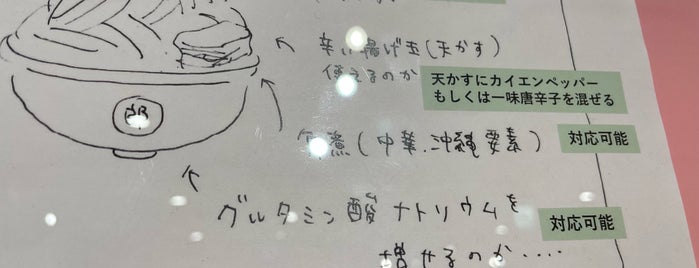 辛い揚げ玉(天かす)
使えるのか
天かすにカイエンペッパー
もしくは一味唐辛子を混ぜる
(中華、沖縄要素)
対応可能
グルタミン酸ナトリウムを
対応可能
増せるのか....